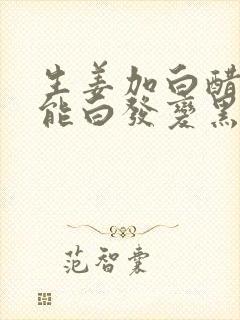 生姜加白醋
能白發變黑
范智囊